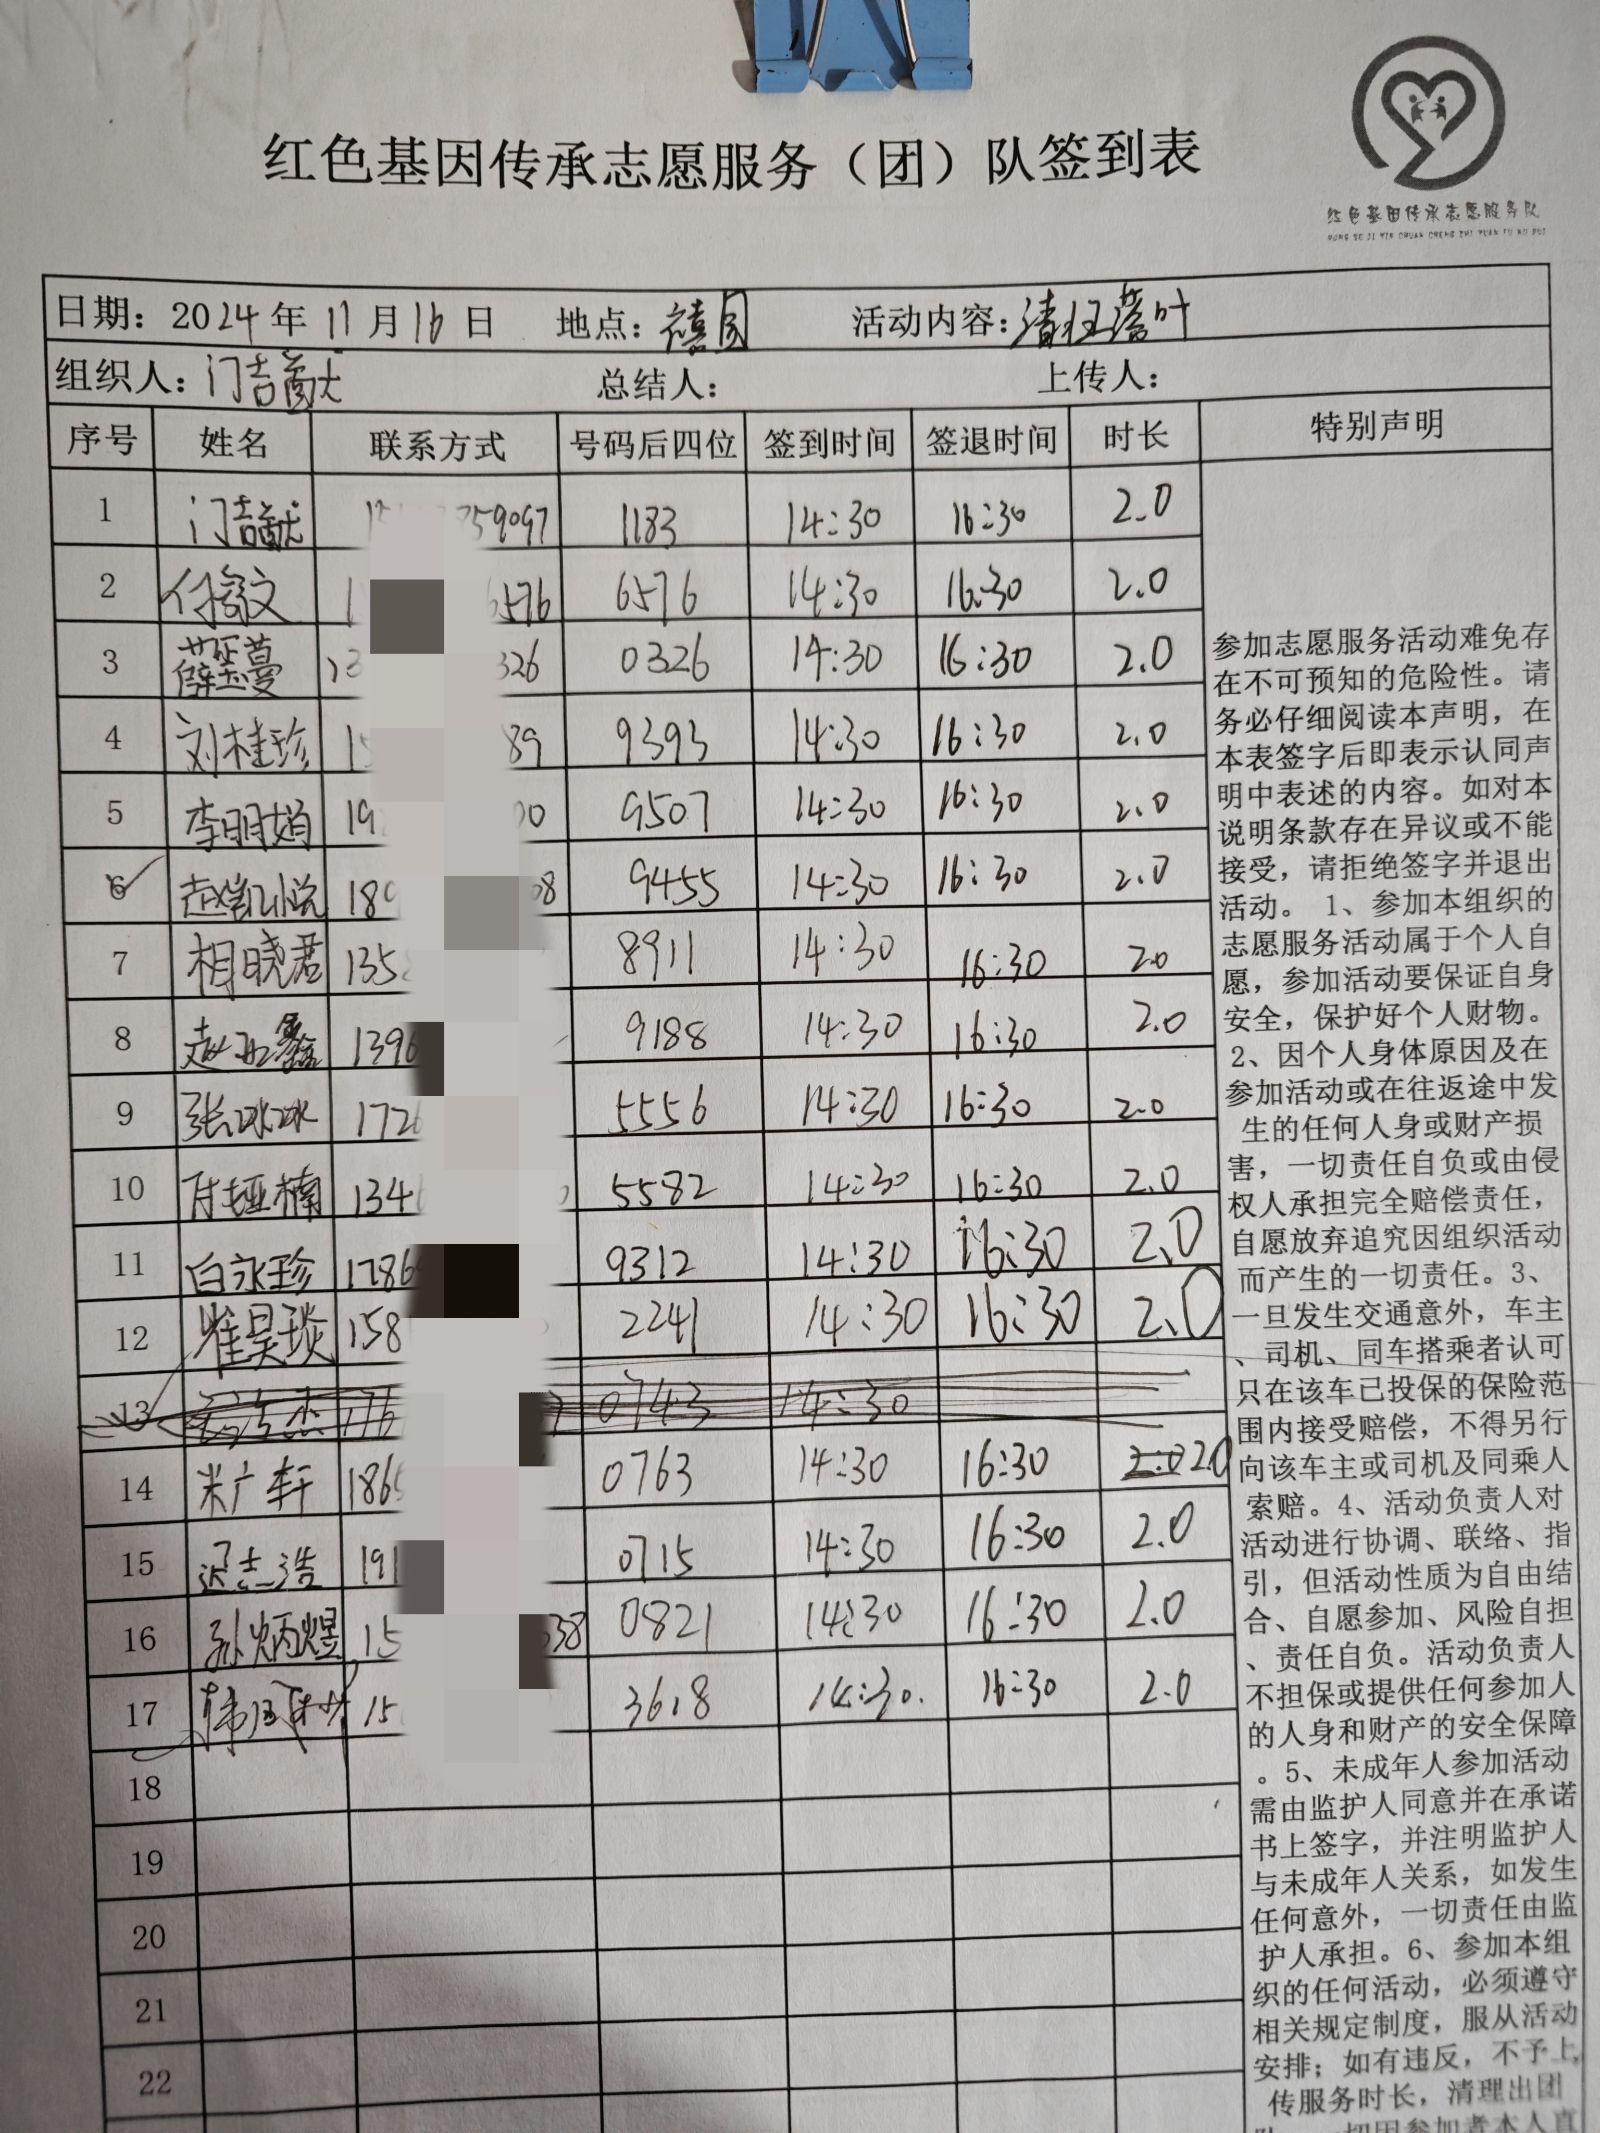 红色基因传承志愿服务（团）队签到表
红色基因传承志愿服务队
HONG SE JI YIN CHUAN CHENG ZHI YUAN FU WU DUI
日期：2024年11月16日 地点：禧园 活动内容：清扫落叶
组织人：门吉猷 总结人： 上传人：
序号 姓名 联系方式 号码后四位 签到时间 签退时间 时长 特别声明
1 门吉猷 59097 1183 14:30 16:30 2.0
2 6576 6576 14:30 16:30 2.0
3 薛玺蔓 326 0326 14:30 16:30 2.0
4 刘桂珍 15 89 9393 14:30 16:30 2.0
5 李明娟 19 00 9507 14:30 16:30 2.0
6 赵凯悦 189 08 9455 14:30 16:30 2.0
7 相晓君 135 8911 14:30 16:30 2.0
8 1396 9188 14:30 16:30 2.0
9 张冰冰 172 5556 14:30 16:30 2.0
10 134 5582 14:30 16:30 2.0
11 白永珍 1786 9312 14:30 16:30 2.0
12 崔昊琰 158 2241 14:30 16:30 2.0
13 176 0743 14:30
14 米广轩 186 0763 14:30 16:30 2.0 2.0
15 迟志浩 191 0715 14:30 16:30 2.0
16 孙炳煜 15 38 0821 14:30 16:30 2.0
17 15 3618 14:30 16:30 2.0
18
19
20
21
22
参加志愿服务活动难免存
在不可预知的危险性。请
务必仔细阅读本声明，在
本表签字后即表示认同声
明中表述的内容。如对本
说明条款存在异议或不能
接受，请拒绝签字并退出
活动。 1、参加本组织的
志愿服务活动属于个人自
愿，参加活动要保证自身
安全，保护好个人财物。
2、因个人身体原因及在
参加活动或在往返途中发
生的任何人身或财产损
害，一切责任自负或由侵
权人承担完全赔偿责任，
自愿放弃追究因组织活动
而产生的一切责任。3、
一旦发生交通意外，车主
、司机、同车搭乘者认可
只在该车已投保的保险范
围内接受赔偿，不得另行
向该车主或司机及同乘人
索赔。4、活动负责人对
活动进行协调、联络、指
引，但活动性质为自由结
合、自愿参加、风险自担
、责任自负。活动负责人
不担保或提供任何参加人
的人身和财产的安全保障
。5、未成年人参加活动
需由监护人同意并在承诺
书上签字，并注明监护人
与未成年人关系，如发生
任何意外，一切责任由监
护人承担。6、参加本组
织的任何活动，必须遵守
相关规定制度，服从活动
安排；如有违反，不予上
传服务时长，清理出团
一切因参加者本人直